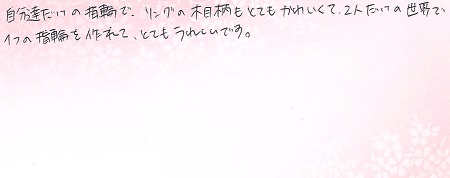 自分達だけの指輪で、リングの木目柄もとてもかわいくて、2人だけの世界で
1つの指輪を作れて、とてもうれしいです。